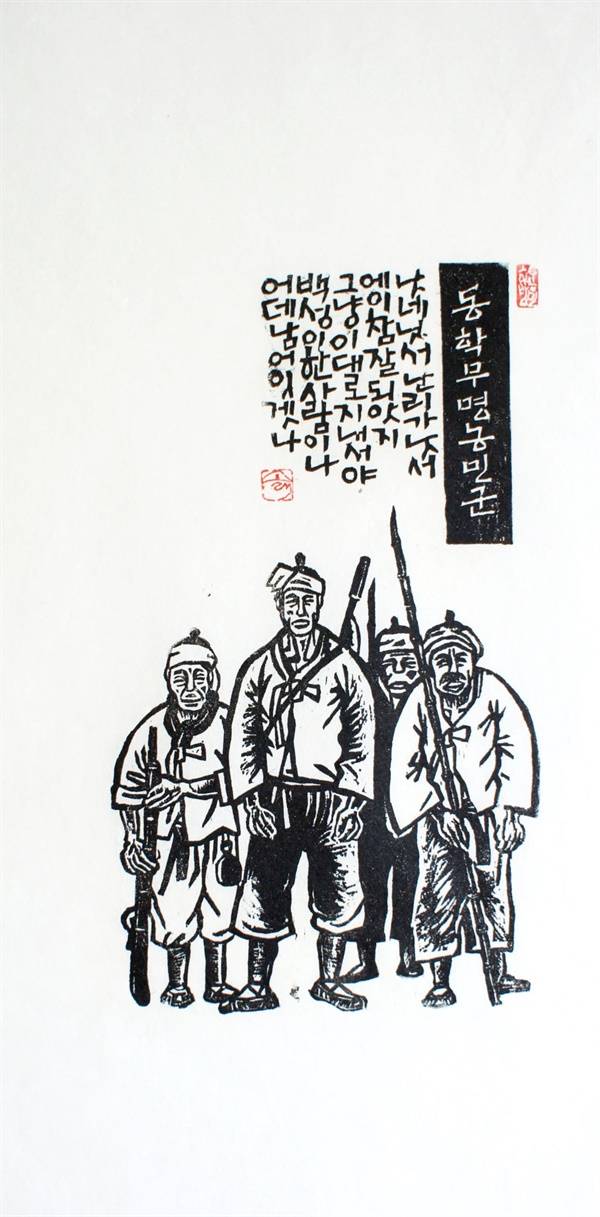 동학무명농민군
낫네낫서 난리가낫서
에이참잘되얏지
그냥이대로지내서야
백성이한사람이나
어데남어잇겟나